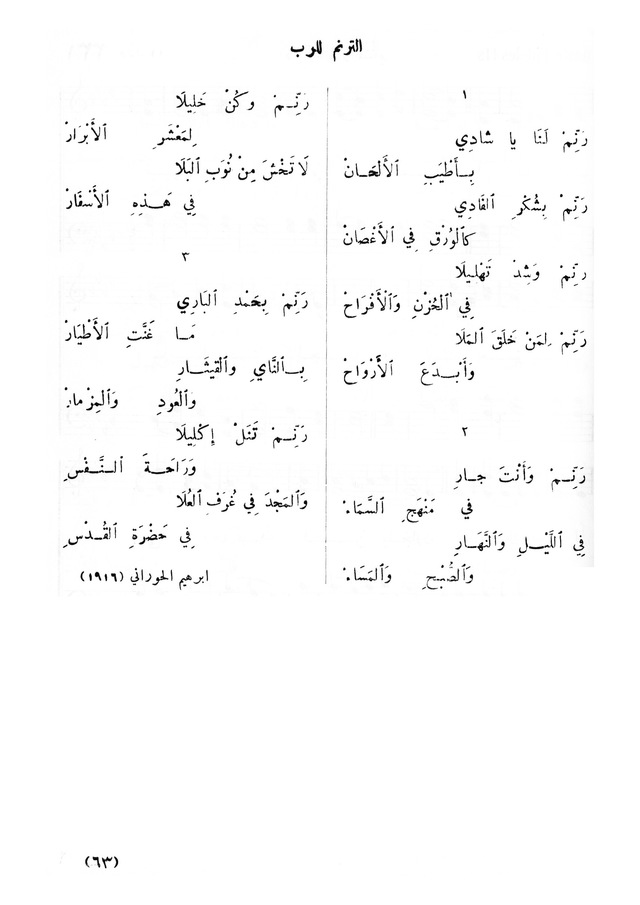 الترنم للرب
١
رَنِّمْ لَنَا يا شادِي
بِـأَطْيَبِ ٱلْأَلْحَـانْ
رَنِّمْ بِشُكْرِ الفَادِي
كَٱلْوُرْقِ فِي ٱلْأَغْصَانْ
رَنِّمْ وَشِدْ تَهْلِيلَا
فِي ٱلْحُزْنِ وَٱلْأَفْرَاحْ
رَنِّمْ لِمَنْ خَلَقَ ٱلمَلَا
وَأَبْـدَعَ ٱلْأَرْوَاحْ
٢
رَنِّـمْ وَأَنْتَ جـارِ
فِي مَنْهَجِ السَّمَاءْ
فِي ٱللَّيْلِ وَٱلنَّهَارِ
وَٱلصُّبْحِ وَٱلمَسَاءْ
رَنِّـمْ وَكُنْ خَلِيلَا
لِمَعْشَرِ ٱلْأَبْرَارْ
لَا تَخْشَ مِنْ نُوَبِ البَلَا
فِي هَـذِهِ ٱلْأَسْفَارْ
٣
رَنِّمْ بِحَمْدِ البَارِي
مَـا غَنَّتِ ٱلْأَطْيَارْ
بِـٱلنَّايِ والقِيثَـارِ
وَٱلعُودِ وَٱلمِزْمارْ
رَنِّـمْ تَنَلْ إِكْلِيلَا
وَرَاحَـةَ ٱلـنَّـفْسِ
وَٱلمَجْدَ فِي غُرَفِ العُلَا
فِي حَضْرَةِ القُدْسِ
ابرهيم الحوراني (١٩١٦)
(٦٣)